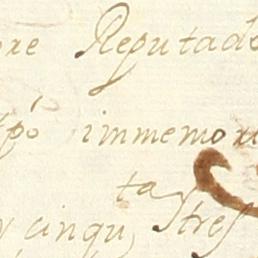 re Reputado
tpõ immemor
ta
y cinqu, stres